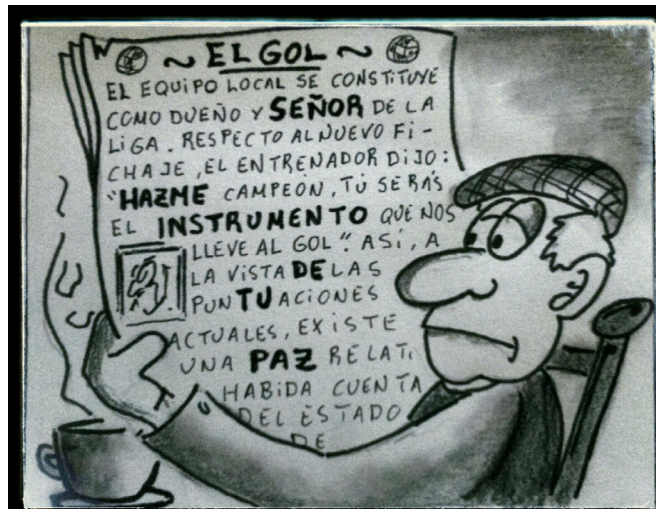 ~ EL GOL ~
EL EQUIPO LOCAL SE CONSTITUYE
COMO DUEÑO Y SEÑOR DE LA
LIGA. RESPECTO AL NUEVO FI-
CHAJE, EL ENTRENADOR DIJO:
"HAZME CAMPEÓN, TÚ SERÁS
EL INSTRUMENTO QUE NOS
LLEVE AL GOL". ASÍ, A
LA VISTA DE LAS
PUNTUACIONES
ACTUALES, EXISTE
UNA PAZ RELATI
HABIDA CUENTA
DEL ESTADO
DE